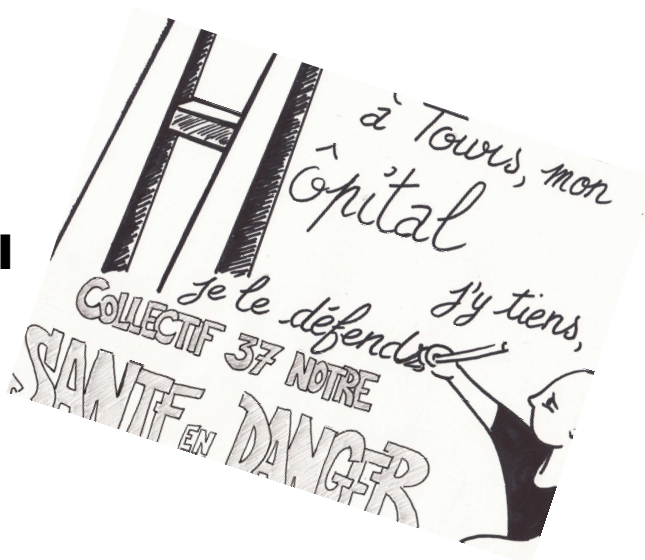 à Tours, mon
Hôpital
j'y tiens,
je le défends
COLLECTIF 37 NOTRE
SANTE EN DANGER